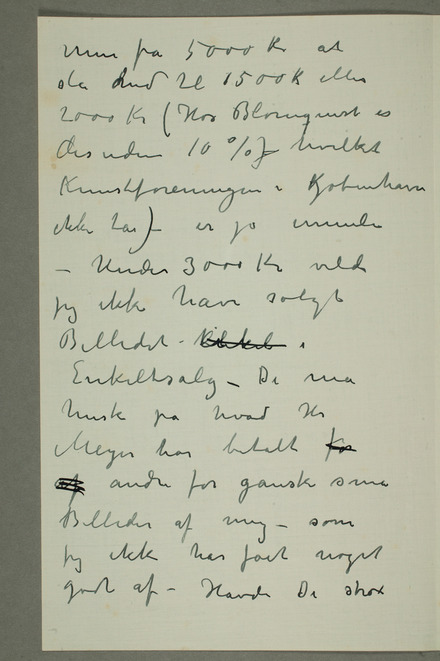 min på 5000 Kr at
slå ned til 1500 K eller
2000 Kr (Hos Blomquist es
desuden 10 % – hvilket
Kunstforeningen i Kjøbenhavn
ikke har) – er jo umulig
– Under 3000 Kr vilde
jeg ikke have solgt
Billedet – i
Enkeltsalg – De må
husk på hvad Hr
Meyer har betalt for
af andre for ganske små
Billeder af mig – som
jeg ikke har fåt noget
godt af – Havde De strax